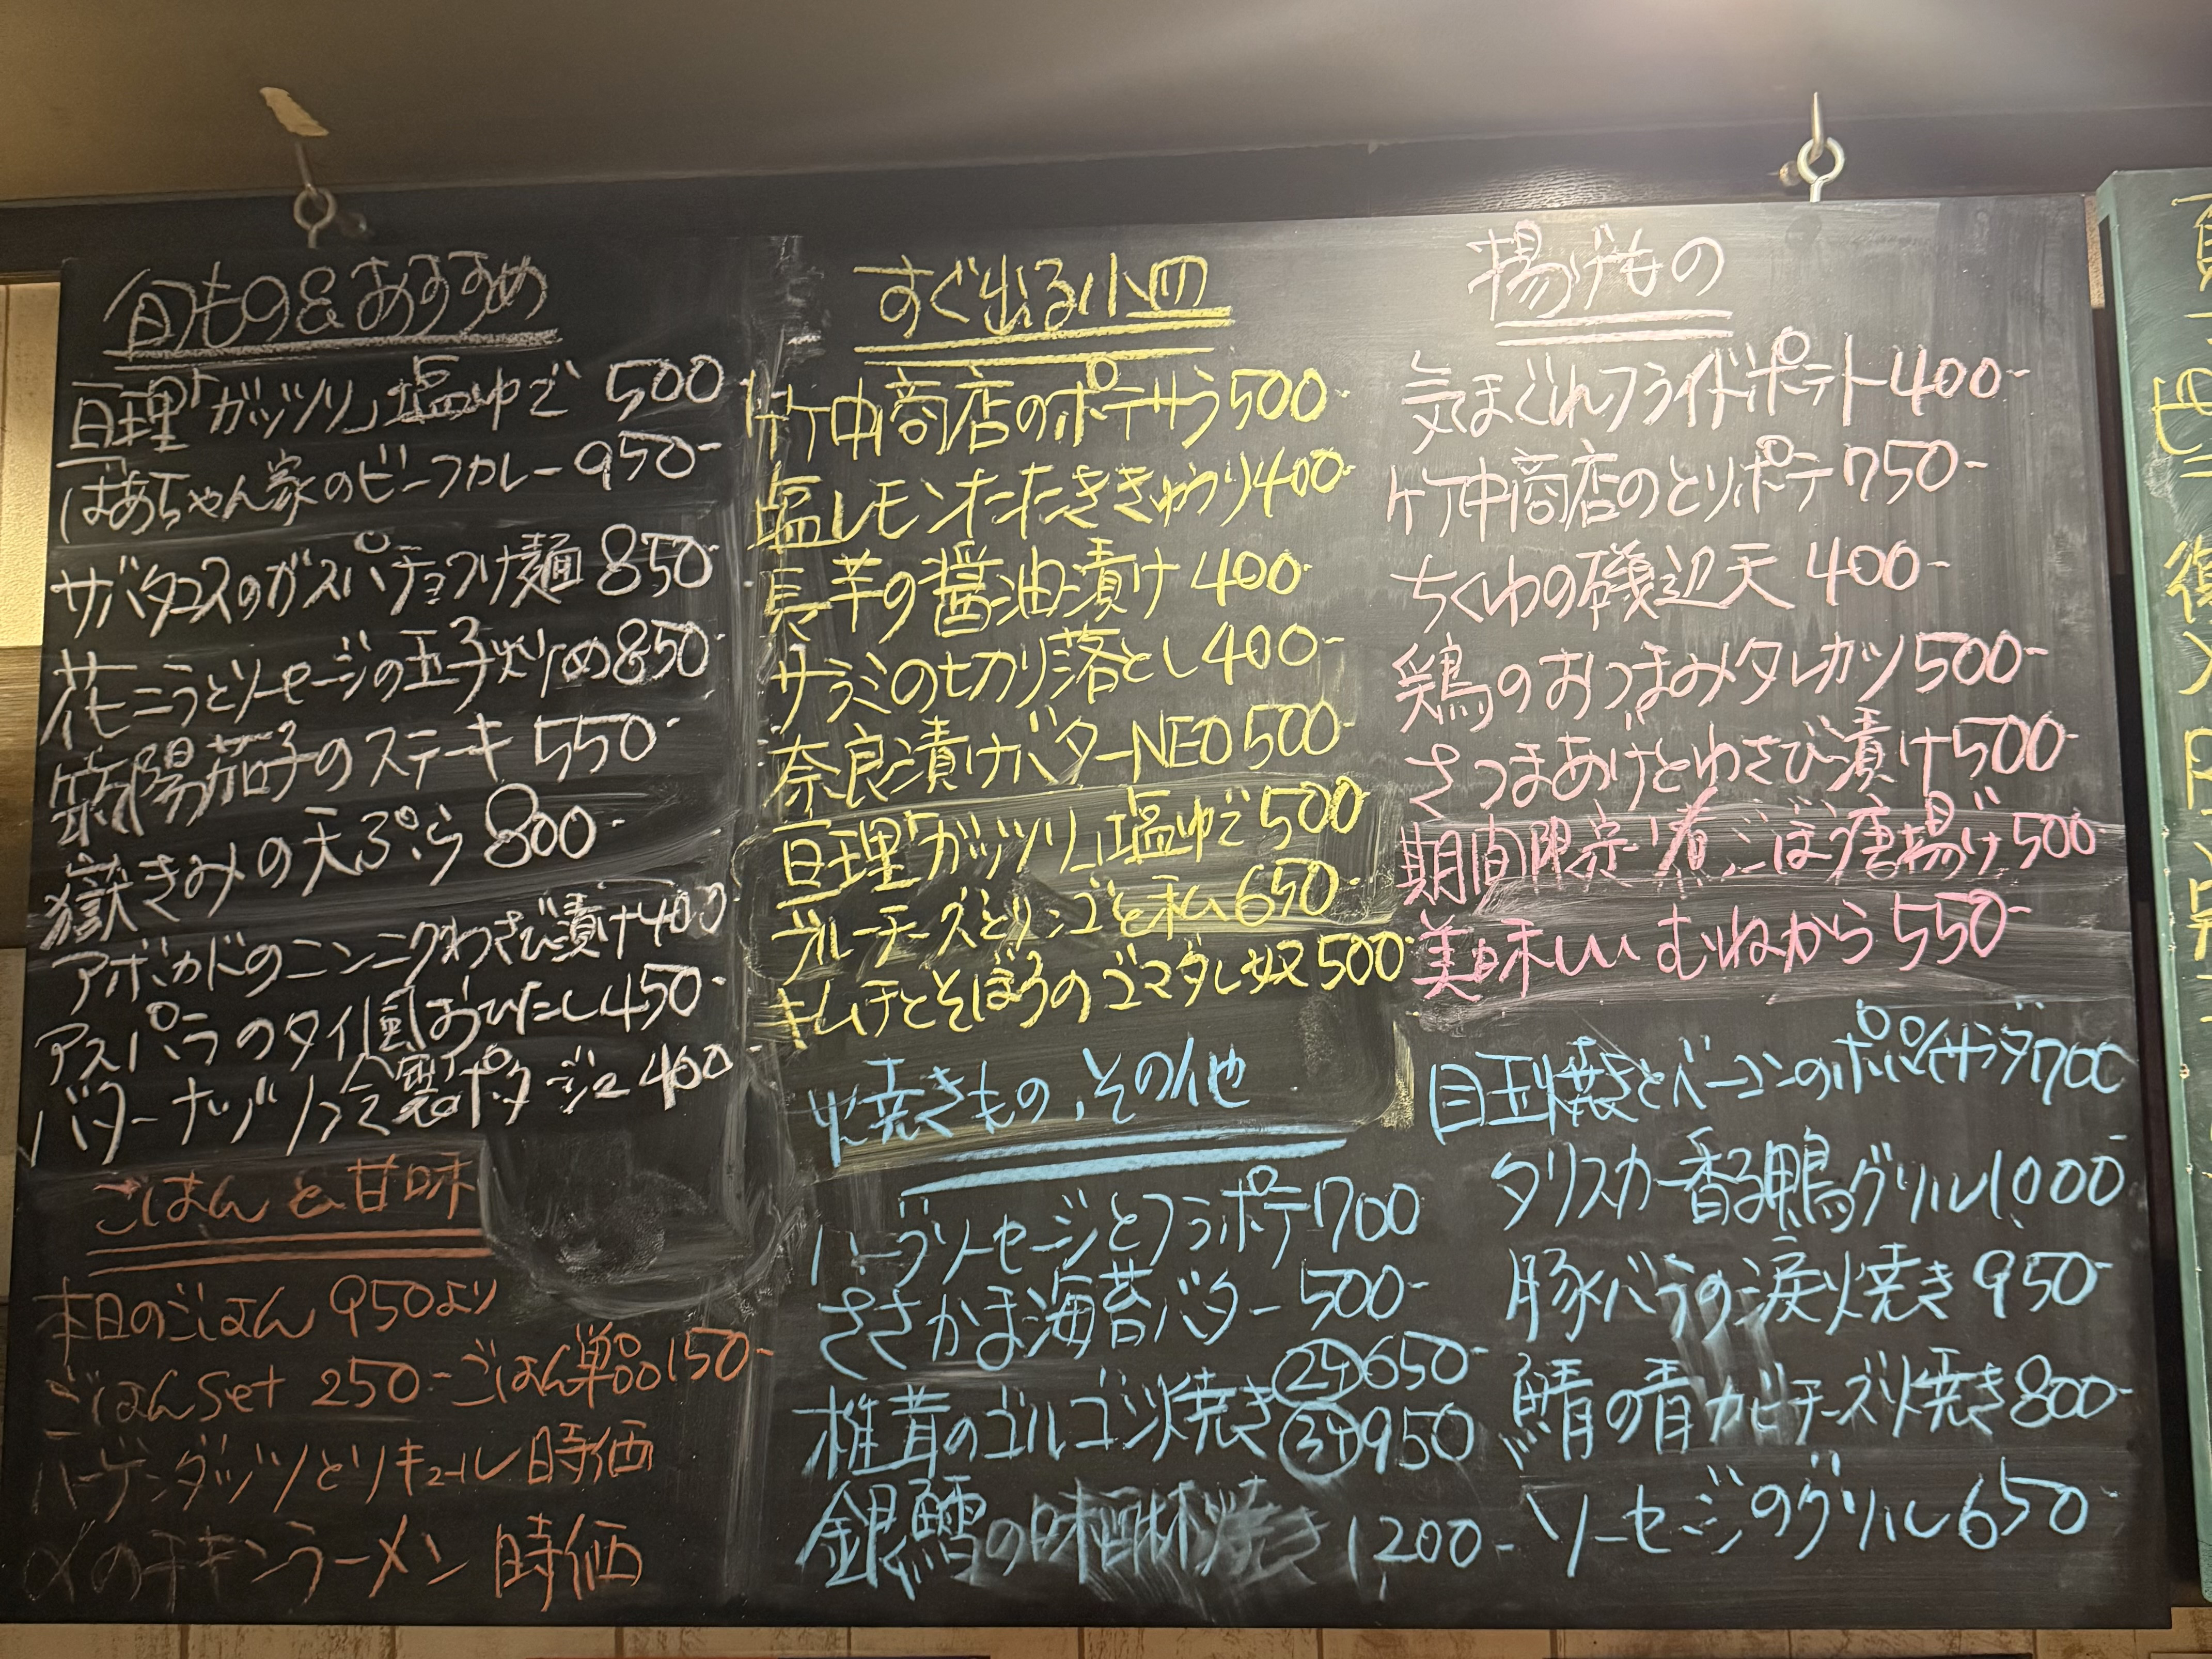 旬もの&おすすめ
亘理「ガッツリ」塩ゆで 500
ばあちゃん家のビーフカレー 950-
サバタコスのガスパチョつけ麺 850-
花ニラとソーセージの玉子炒め 850-
築陽茄子のステーキ 550-
嶽きみの天ぷら 800-
アボカドのニンニクわさび漬け 400-
アスパラのタイ風おひたし 450-
バターナッツノ冷製ポタージュ 400-
ごはんと甘味
本日のごはん 950より
ごはんSet 250- ごはん単品 150-
ハーゲンダッツとリキュール 時価
〆のチキンラーメン 時価
すぐ出る小皿
竹中商店のポテサラ 500-
塩レモンたたききゅうり 400-
長芋の醤油漬け 400-
サラミの切り落とし 400-
奈良漬けバターNEO 500-
亘理「ガッツリ」塩ゆで 500-
ブルーチーズとリンゴと私 650-
キムチとそぼろのゴマダレ奴 500-
揚げもの
気まぐれフライドポテト 400-
竹中商店のとりポテ 750-
ちくわの磯辺天 400-
鶏のおつまみタレカツ 500-
さつまあげとわさび漬け 500-
期間限定!煮ごぼう唐揚げ 500-
美味しい むねから 550-
焼きもの、その他
ハーブソーセージとフラポテ 700
ささかま海苔バター 500-
椎茸のゴルゴン焼き ②4 650-
③4 950
銀鱈の味醂焼き 1200-
目玉焼きとベーコンのポパイサラダ 700
タリスカー香る鴨グリル 1000-
豚バラの涙焼き 950-
鯖の青カビチーズ焼き 800-
ソーセージのグリル 650-